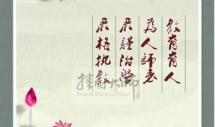 教書育人
為人師表
嚴謹治學
嚴格執教